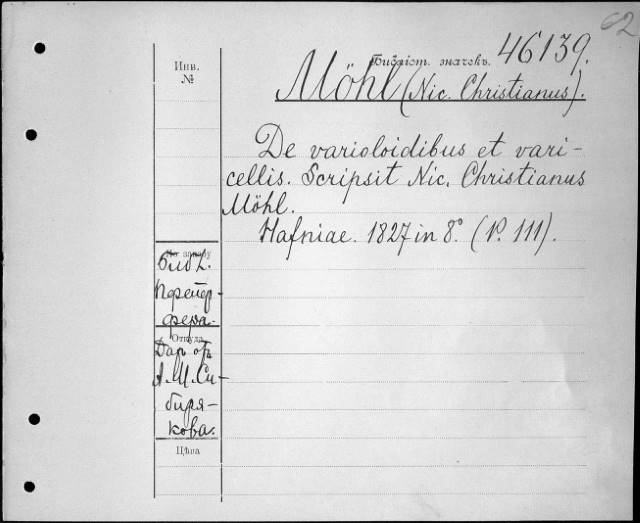 62
Инв.
№
Библіот. значекъ. 46139.
Möhl (Nic. Christianus).
De varioloidibus et vari-
cellis. Scripsit Nic. Christianus
Möhl.
Hafniae. 1827 in 8° (P. 111).
По заказу
Библ.
Пфейф-
фера.
Откуда
Дар от
А. М. Си-
биря-
кова.
Цѣна